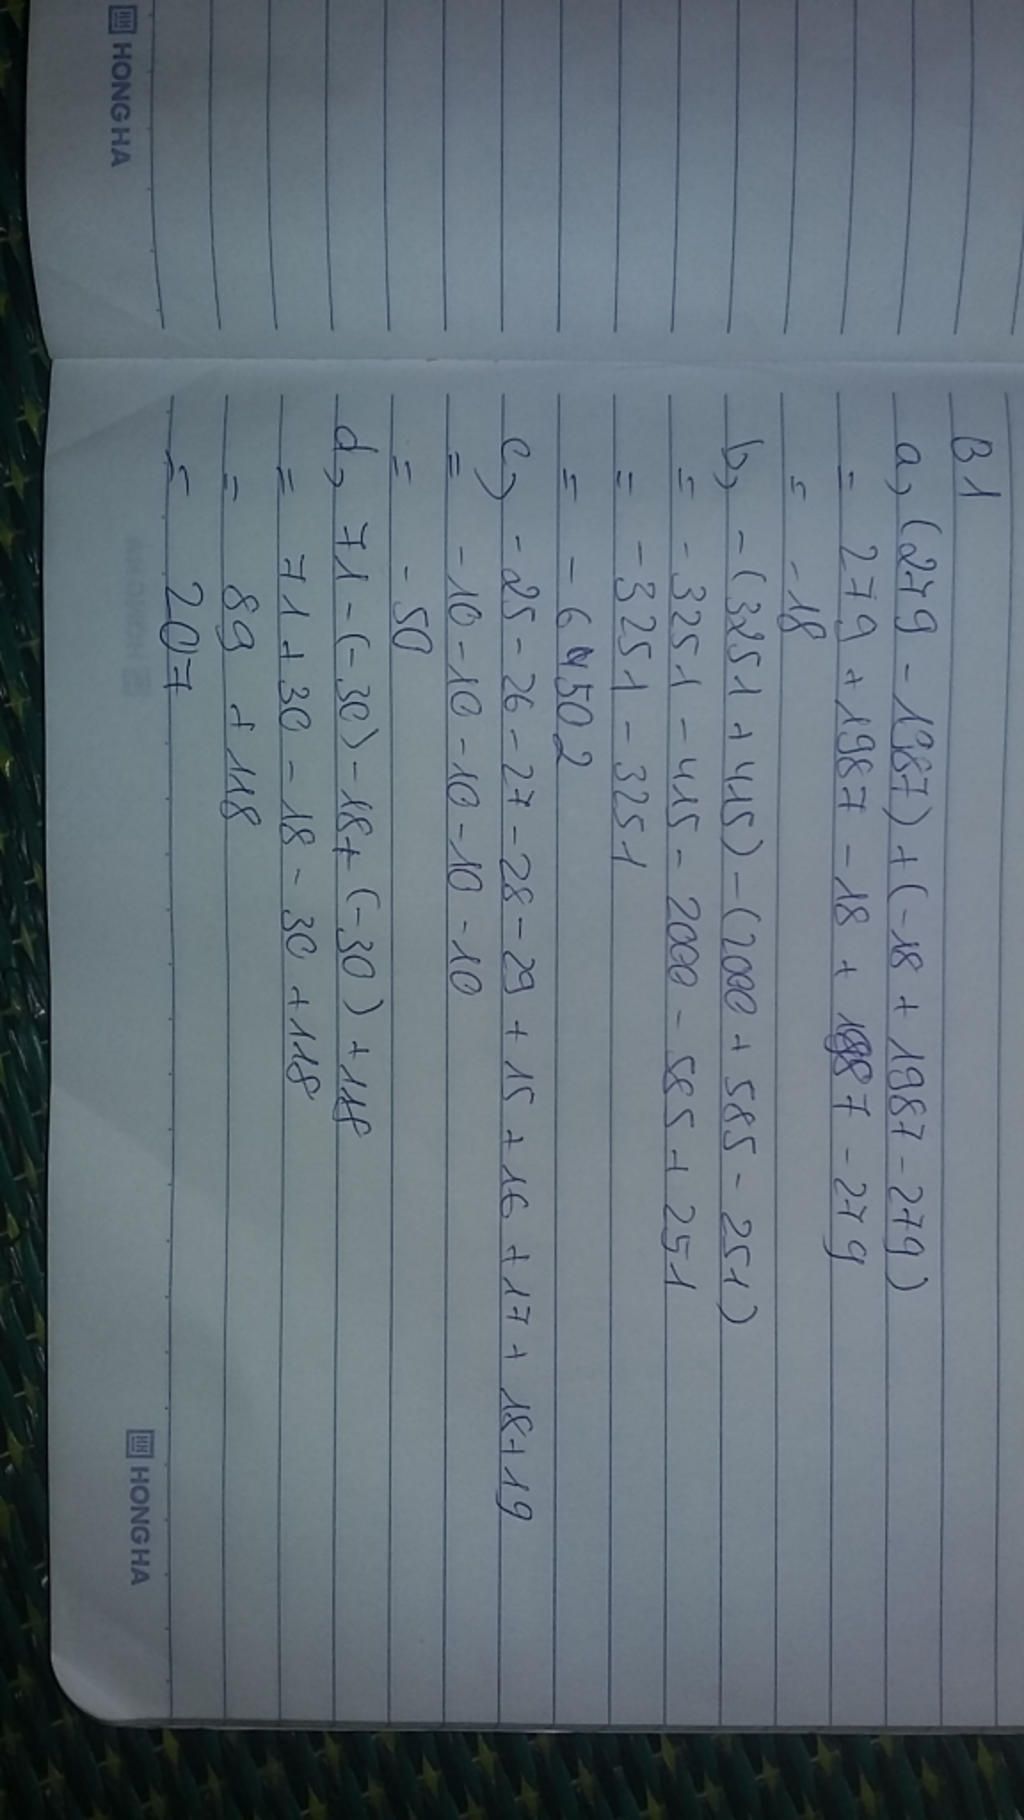 HONG HA
B1
a, (279 - 1987) + (-18 + 1987 - 279)
= 279 + 1987 - 18 + 1987 - 279
= -18
b, - (3251 + 415) - (2000 + 585 - 251)
= - 3251 - 415 - 2000 - 585 + 251
= - 3251 - 3251
= - 6502
c, - 25 - 26 - 27 - 28 - 29 + 15 + 16 + 17 + 18 + 19
= - 10 - 10 - 10 - 10 - 10
= - 50
d, 71 - (-30) - 18 + (-30) + 118
= 71 + 30 - 18 - 30 + 118
= 89 + 118
= 207
HONG HA